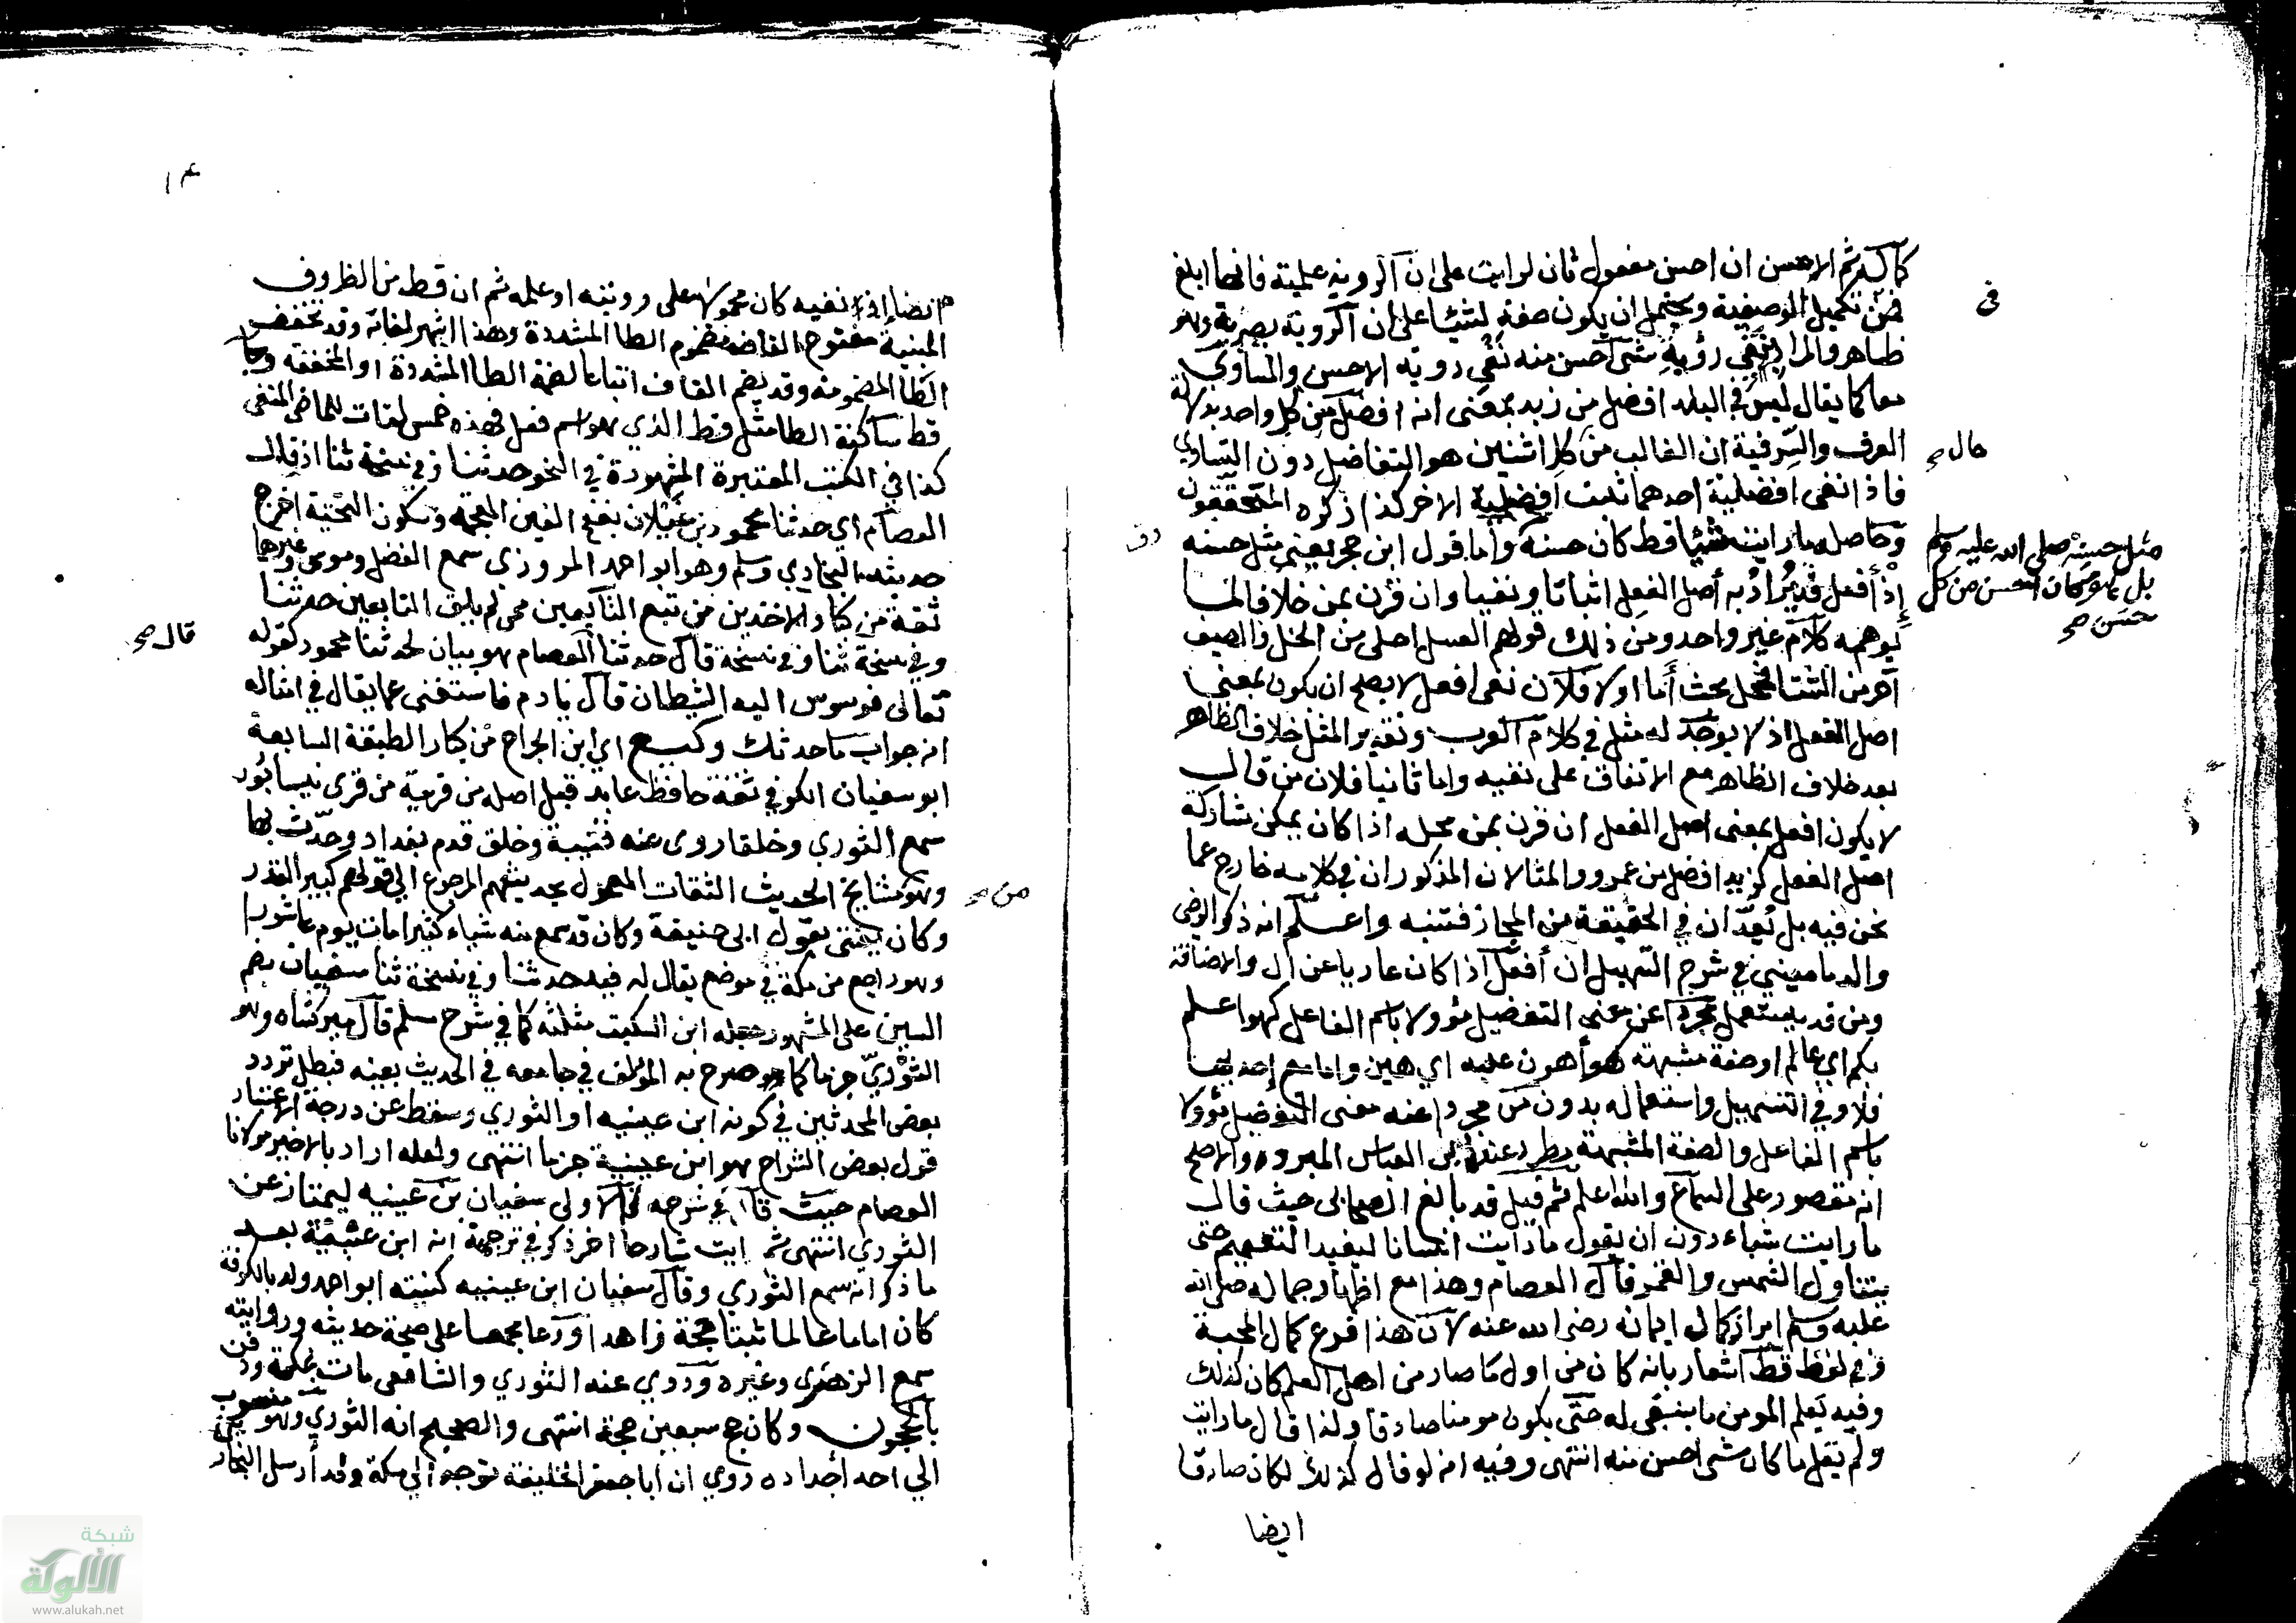 كاليد ثم الاحسن ان احسن مفعول ثان لرايت على ان الروية علمية فانها ابلغ
في
من تكميل الوصفية ويحتمل ان يكون صفة لشيئا على ان الروية بصرية وهو
ظاهر والمراد نفي رؤية شئ احسن منه نفي روية الاحسن والمساوي
معا كما يقال ليس في البلد افضل من زيد بمعنى انه افضل من كل واحد بدلالة
العرف والسر فيه ان الغالب من كل اثنين هو التفاضل دون التساوي
حال صح
فاذا نفى افضلية احدهما ثبت افضلية الاخر كذا ذكره المحققون
وحاصله ما رايت شيئا قط كان حسنه واما قول ابن حجر يعني مثل حسنه
مثل حسنه صلى الله عليه وسلم
بل هو كان احسن من كل
حسن صح
إذ أفعل قد يُراد به أصل الفعل اثباتا ونفيا وان قرن بمن خلافا لما
يوهمه كلام غير واحد ومن ذلك قولهم العسل احلى من الخل والصيف
احر من الشتا فمحل بحث أما اولا فلان نفى افعل لا يصلح ان يكون بمعنى
اصل الفعل اذ لا يوجد له مثل في كلام العرب وتقدير المثل خلاف الظاهر
بعد خلاف الظاهر مع الاتفاق على نفيه واما ثانيا فلان من قال
لا يكون افعل بمعنى اصل الفعل ان قرن بمن محله اذا كان يمكن مشاركة
اصل الفعل كزيد افضل من عمرو والمثالان المذكوران في كلامه خارج عما
نحن فيه بل يُعدّان في الحقيقة من المجاز فتنبه واعلم انه ذكر الرضى
والدماميني في شرح التسهيل ان أفعل اذا كان عاريا عن ال والاضافة
ومن قد يستعمل مجردا عن معنى التفضيل مؤولا باسم الفاعل كهو اعلم
بكم اي عالم او صفة مشبهة كهو أهون عليه اي هين واما مع إحديها
فلا وفي التسهيل واستعماله بدون من مجردا عنه معنى التفضيل مؤولا
باسم الفاعل والصفة المشبهة مطرد عند ابي العباس المبرد والاصح
انه مقصور على السماع والله اعلم ثم قيل قد بالغ الصحابي حيث قال
ما رايت شياء دون ان يقول ما رايت انسانا ليفيد التعميم حتى
يتناول الشمس والقمر قال العصام وهذا مع اظهار جماله صلى الله
عليه وسلم ابراز كمال ايمانه رضى الله عنه لان هذا فرع كمال المحبة
وفي لفظ قط اشعار بانه كان من اول ما صار من اهل العلم كان كذلك
وفيه تعلم المومن ما ينبغى له حتى يكون مومنا صادقا ولذا قال ما رايت
ولم يقل ما كان شئ احسن منه انتهى وفيه انه لو قال كذلك لكان صادقا
ايضا
١٣
ايضا نفيه كان محمولا على رويته او علمه ثم ان قط من الظروف
المبنية مفتوح القاف مضموم الطا المشددة وهذا اشهر لغاته وقد تخفف
الطا المضمومة وقد يضم القاف اتباعا لضمة الطا المشددة او المخففة وجا
قط ساكنة الطا مثل قط الذي هو اسم فعل فهذه خمس لغات للماضى المنفى
كذا في الكتب المعتبرة المشهورة في النحو حدثنا وفي نسخة ثنا اذ قال
العصام اي حدثنا محمود بن غيلان بفتح الغين المعجمة وسكون التحتية اخرج
حديثه البخاري ومسلم وهو ابو احمد المروزى سمع الفضل وموسى وغيرهما
ثقة من كبار الاخذين من تبع التابعين ممن لم يلق التابعين حدثنا
وفي نسخة ثنا وفي نسخة قال حدثنا العصام هو بيان لحدثنا محمود كقوله
قال صح
تعالى فوسوس اليه الشيطان قال يادم فاستغنى عما يقال في امثاله
انه جواب ما حدثك وكيع اي ابن الجراح من كبار الطبقة السابعة
ابو سفيان الكوفي ثقة حافظ عابد قيل اصله من قرية من قرى نيسابُور
سمع الثوري وخلقا روى عنه قتيبة وخلق قدم بغداد وحدّث بها
وهو مشايخ الحديث الثقات المعمول بحديثهم المرجوع الى قولهم كبير القدر
من صح
وكان يفتى بقول ابى حنيفة وكان قد سمع منه شياء كثيرا مات يوم عاشورا
وهو راجع من مكة في موضع يقال له فيد حدثنا وفي نسخة ثنا سفيان بضم
السين على المشهور وجعله ابن السكيت مثلثه كما في شرح مسلم قال ميركشاه وهو
الثوريّ جزما كما صرح به المولف في جامعه في الحديث بعينه فبطل تردد
بعض المحدثين في كونه ابن عيينه او الثوري وسقط عن درجة الاعتبار
قول بعض الشراح هو ابن عيينة جزما انتهى ولعله اراد بالاخير مولانا
العصام حيث قال في شرحه الاولى سفيان بن عيينه ليمتاز عن
الثوري انتهى ثم رايت شارحا اخر ذكر في ترجمة انه ابن عيينة بعد
ما ذكر انه سمع الثوري وقال سفيان ابن عيينه كنيته ابو احمد ولد بالكوفة
كان اماما عالما ثبتا حجة زاهدا ورعا مجمعا على صحة حديثه وروايته
سمع الزهرى وغيره وروي عنه الثوري والشافعى مات بمكة ودفن
بالحجون وكان حج سبعين حجة انتهى والصحيح انه الثوري وهو منسوب
الى احد أجداده روي ان أبا جعفر الخليفة توجه الى مكة وقد أرسل النجار
شبكة
الألوكة
www.alukah.net